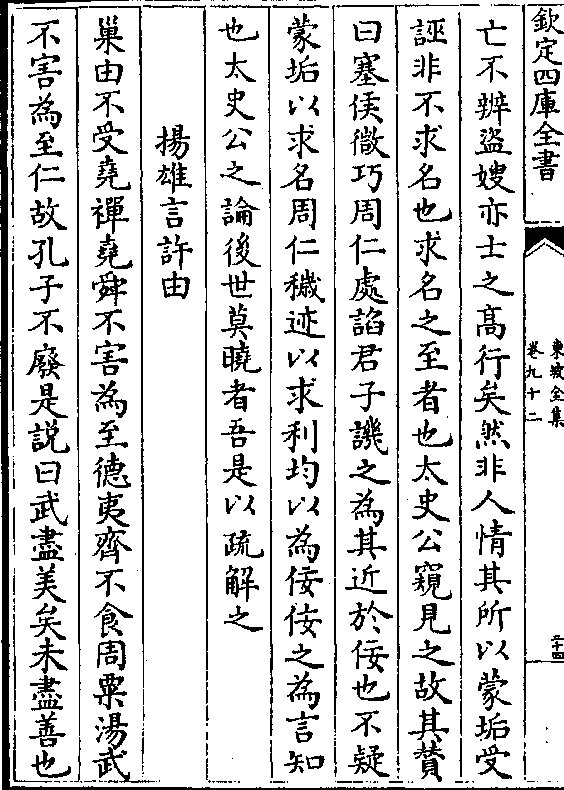 欽定四庫全書
東坡全集
卷九十二
二十四
亡不辨盜嫂亦士之髙行矣然非人情其所以蒙垢受
誣非不求名也求名之至者也太史公窺見之故其賛
曰塞侯㣲巧周仁處諂君子譏之為其近於佞也不疑
蒙垢以求名周仁穢迹以求利均以為佞佞之為言知
也太史公之論後世莫曉者吾是以疏解之
揚雄言許由
巢由不受堯禪堯舜不害為至德夷齊不食周粟湯武
不害為至仁故孔子不廢是説曰武盡美矣未盡善也